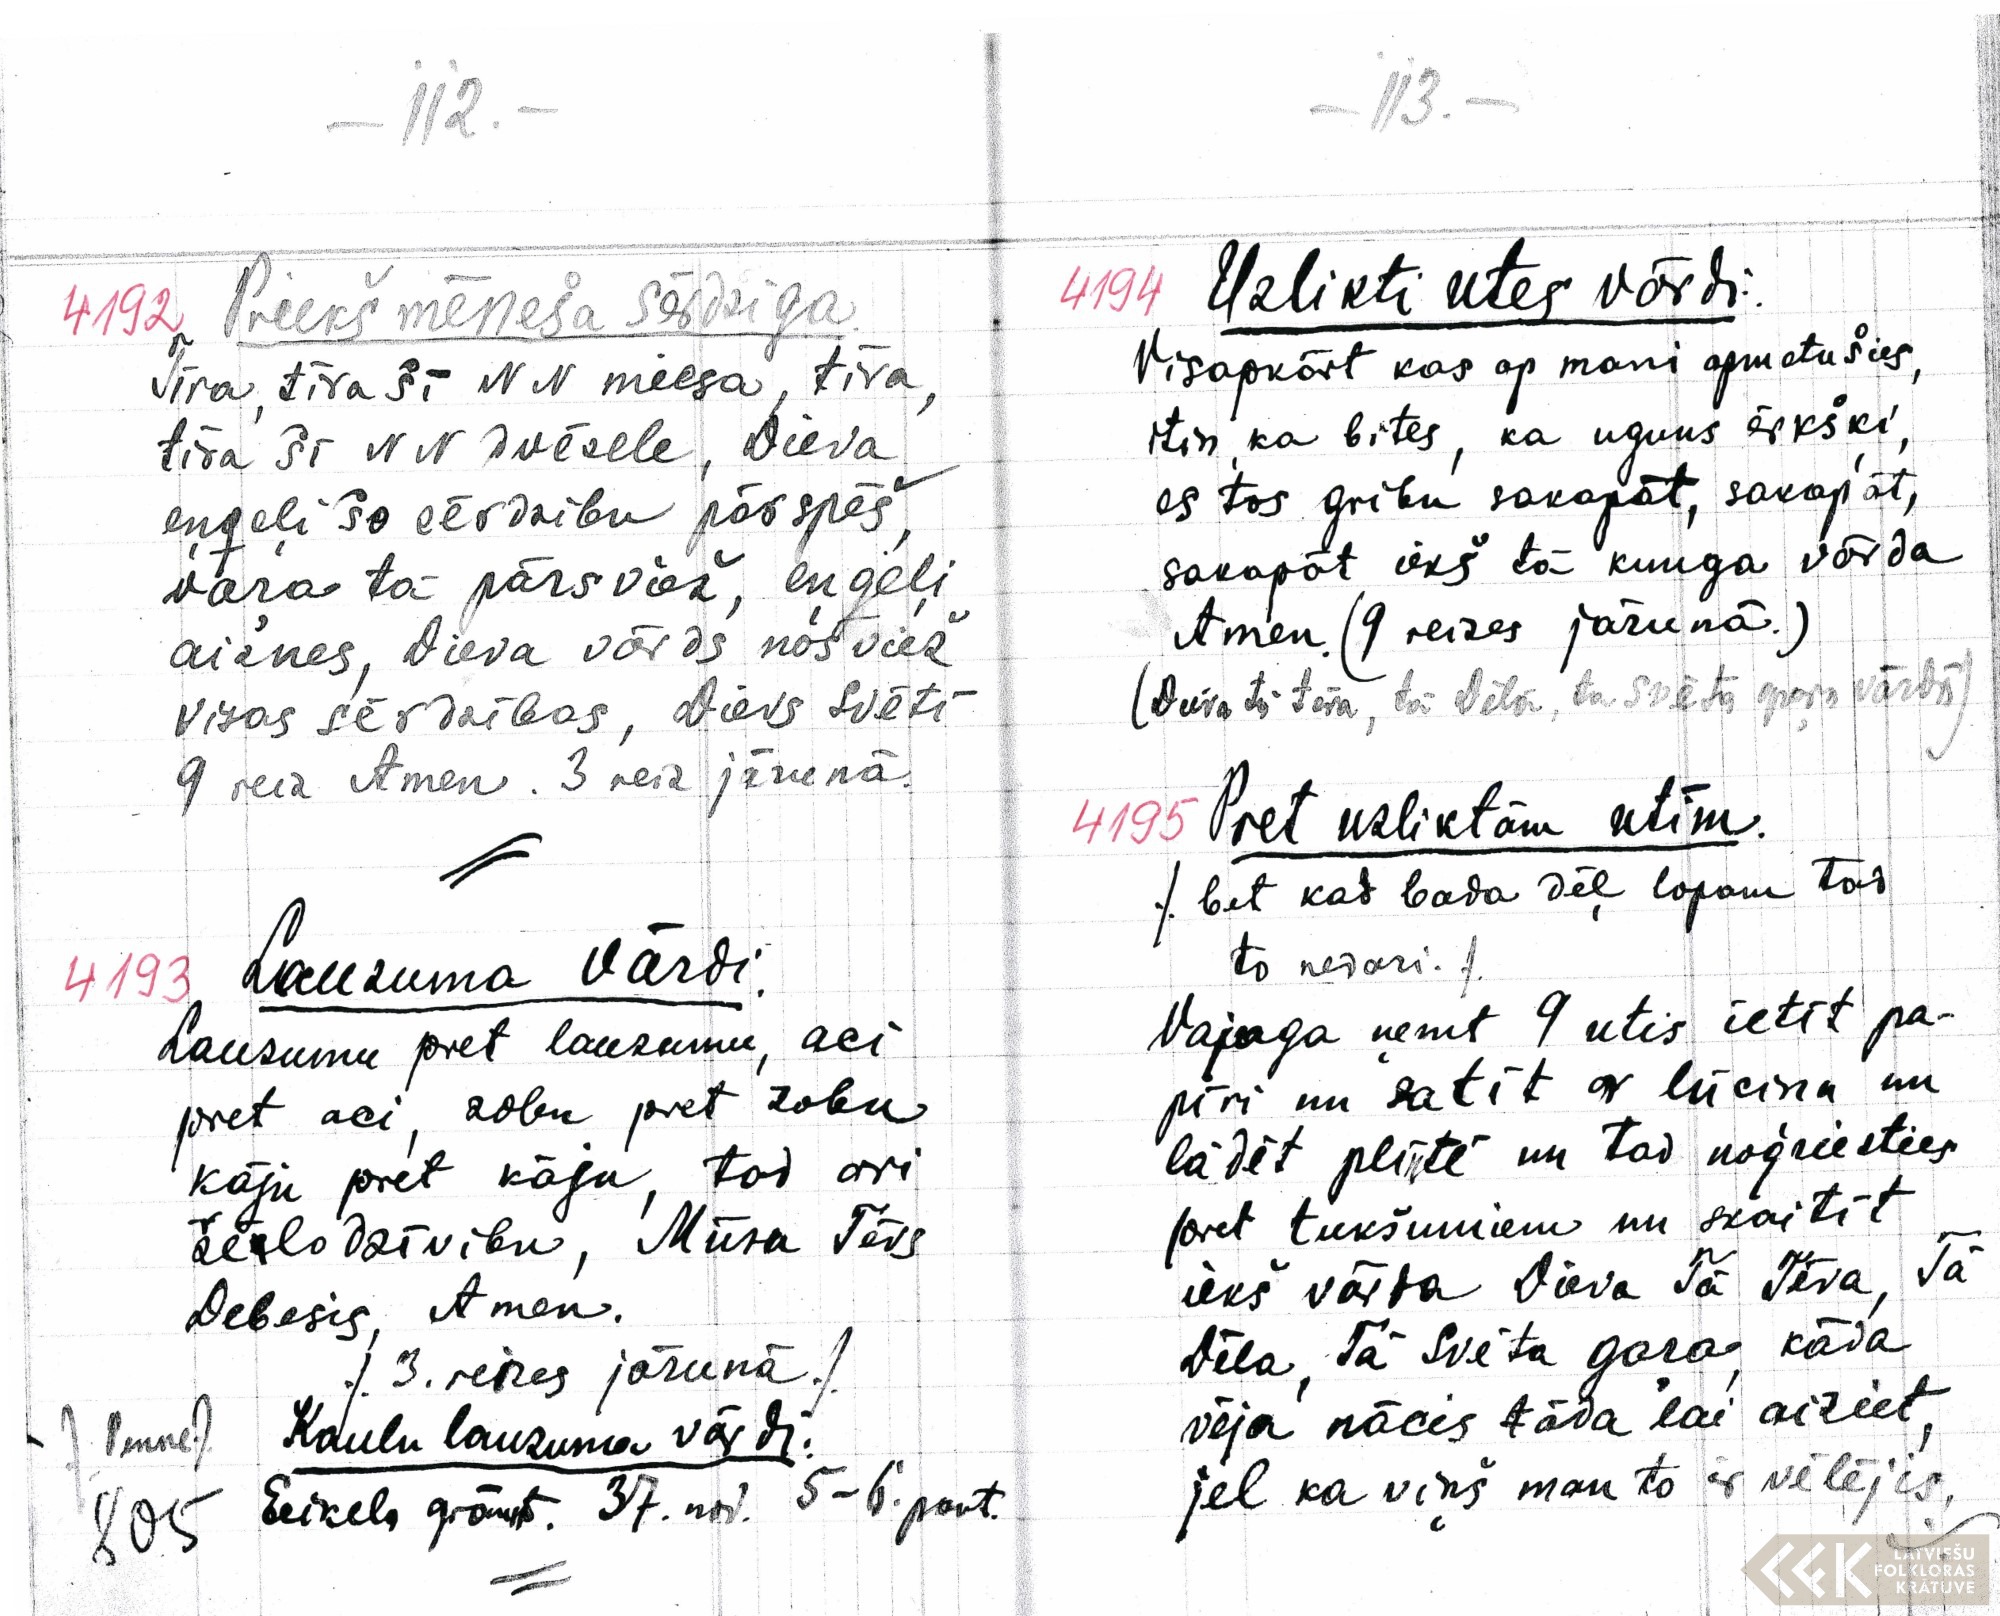 -112.-
4192 Priekš mēneša sērdziga.
Tīra, tīra šī NN miesa, tīra,
tīra šī NN dvēsele, Dieva
eņģeļi šo sērdzibu pārspēš,
vara tā pārsviež, eņģeļi
aiznes, Dieva vārds nosviež
visas sērdzības, Dievs Svētī
9 reiz Amen. 3 reiz jārunā.
4193 Lauzuma Vārdi.
Lauzumu pret lauzumu, aci
pret aci, zobu pret zobu
kāju pret kāju, tad ari
dzīvibu, Mūsu Tēvs
Debesis, Amen.
./. 3. reizes jārunā ./.
Kaulu lauzuma vārdi:
805 Ecikela grāmt. 37. nod. 5-6. pant.
-113.-
4194 Uzlikti utes vārdi:.
Visapkārt kas ap mani apmetušies,
itin ka bites, ka uguns ērkšķi,
es tos gribu sakapāt, sakapāt,
sakapāt iekš tā kunga vārda
Amen. (9 reizes jārunā.)
(Dieva tā tēva, tā Dēla, tā svētā gara vārdā)
4195 Pret uzliktām utīm.
./. bet kad bada dēļ lopam tad
to nedari. ./.
Vajaga ņemt 9 utis ietīt pa-
pīri un satīt ar lūciņu un
lādēt plintē un tad nogriezties
pret tukšumiem un skaitīt
iekš vārda Dieva Tā Tēva, Tā
Dēla, Tā Svēta gara, kāda
vēja nācis tāda lai aiziet,
jel ka viņš man to ir vēlējis.
LATVIEŠU
FOLKLORAS
KRĀTUVE